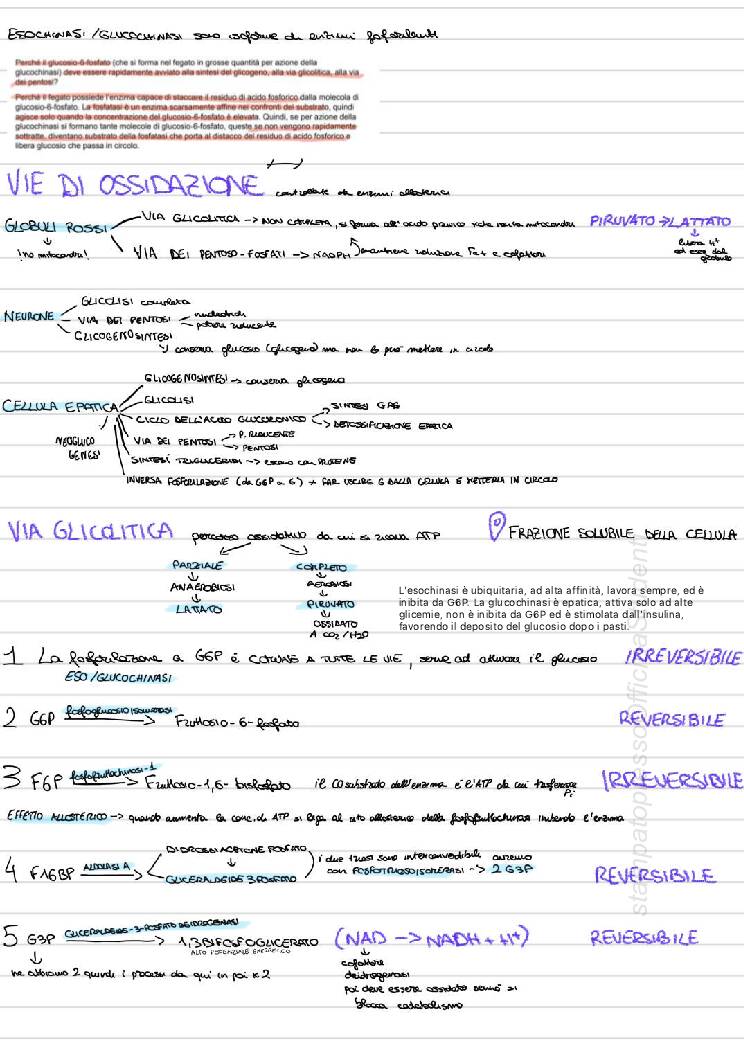 ESOCHINASI / GLUCOCHINASI sono isoforme di enzimi fosforilanti
Perché il glucosio-6-fosfato (che si forma nel fegato in grosse quantità per azione della
glucochinasi) deve essere rapidamente avviato alla sintesi del glicogeno, alla via glicolitica, alla via
dei pentosi?
Perché il fegato possiede l'enzima capace di staccare il residuo di acido fosforico dalla molecola di
glucosio-6-fosfato. La fosfatasi è un enzima scarsamente affine nei confronti del substrato, quindi
agisce solo quando la concentrazione del glucosio-6-fosfato è elevata. Quindi, se per azione della
glucochinasi si formano tante molecole di glucosio-6-fosfato, queste se non vengono rapidamente
sottratte, diventano substrato della fosfatasi che porta al distacco del residuo di acido fosforico e
libera glucosio che passa in circolo.
VIE DI OSSIDAZIONE controllate da enzimi allosterici
GLOBULI ROSSI
VIA GLICOLITICA -> NON COMPLETA, si ferma all' acido piruvico mitocondri PIRUVATO -> LATTATO
↓
!no mitocondri! VIA DEI PENTOSO-FOSFATI -> NADPH mantiene riduzione Fe+ e cofattori
libera H+
ed esce dal
globulo
NEURONE
GLICOLISI completa
VIA DEI PENTOSI nucleotidi
potere riducente
GLICOGENOSINTESI
conserva glucosio (glicogeno) ma non lo può mettere in circolo
CELLULA EPATICA
GLICOGENOSINTESI -> conserva glicogeno
GLICOLISI
CICLO DELL'ACIDO GLUCURONICO -> SINTESI GAG
-> DETOSSIFICAZIONE EPATICA
NEOGLUCO
GENESI
VIA DEI PENTOSI P. RIDUCENTE
PENTOSI
SINTESI TRIGLICERIDI -> escono con PROTEINE
INVERSA FOSFORILAZIONE (da G6P a G) -> FAR USCIRE G DALLA CELLULA E METTERLA IN CIRCOLO
VIA GLICOLITICA percorso ossidativo da cui si ricava ATP FRAZIONE SOLUBILE DELLA CELLULA
PARZIALE COMPLETO
↓ ↓
ANAEROBIOSI AEROBIOSI
↓ ↓
LATTATO PIRUVATO
↓
OSSIDATO
A CO2/H2O
L'esochinasi è ubiquitaria, ad alta affinità, lavora sempre, ed è
inibita da G6P. La glucochinasi è epatica, attiva solo ad alte
glicemie, non è inibita da G6P ed è stimolata dall'insulina,
favorendo il deposito del glucosio dopo i pasti.
1 La fosforilazione a G6P è COMUNE A TUTTE LE VIE, serve ad attivare il glucosio IRREVERSIBILE
ESO/GLUCOCHINASI
2 G6P fosfoglucosioisomerasi Fruttosio-6-fosfato REVERSIBILE
3 F6P fosfofruttochinasi-1 Fruttosio-1,6-bisfosfato il cosubstrato dell'enzima è l'ATP da cui trasferisce Pi IRREVERSIBILE
EFFETTO ALLOSTERICO -> quando aumenta la conc. di ATP si lega al sito allosterico della fosfofruttochinasi inibendo l'enzima
4 F16BP ALDOLASI A
DIIDROSSIACETONE FOSFATO
↓
GLICERALDEIDE 3-FOSFATO
i due triosi sono interconvertibili avremo
con FOSFOTRIOSOISOMERASI -> 2 G3P
REVERSIBILE
5 G3P GLICERALDEIDE-3-FOSFATO DEIDROGENASI 1,3 BIFOSFOGLICERATO (NAD -> NADH + H+) REVERSIBILE
ALTO POTENZIALE ENERGETICO
↓
ne abbiamo 2 quindi i processi da qui in poi x2
↓
cofattore
deidrogenasi
poi deve essere ossidato sennò si
blocca catabolismo